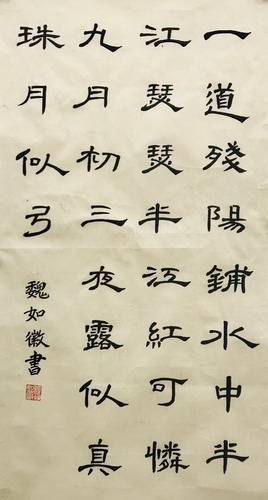 一道殘陽鋪水中半
江瑟瑟半江紅可憐
九月初三夜露似真
珠月似弓
魏如徽書